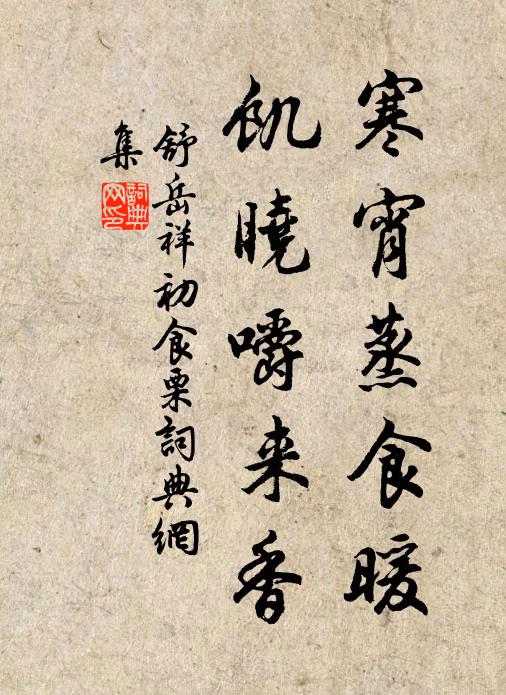 寒宵蒸食暖
飢曉嚼来香
舒岳祥初食栗詞典網
集
詞典
网印